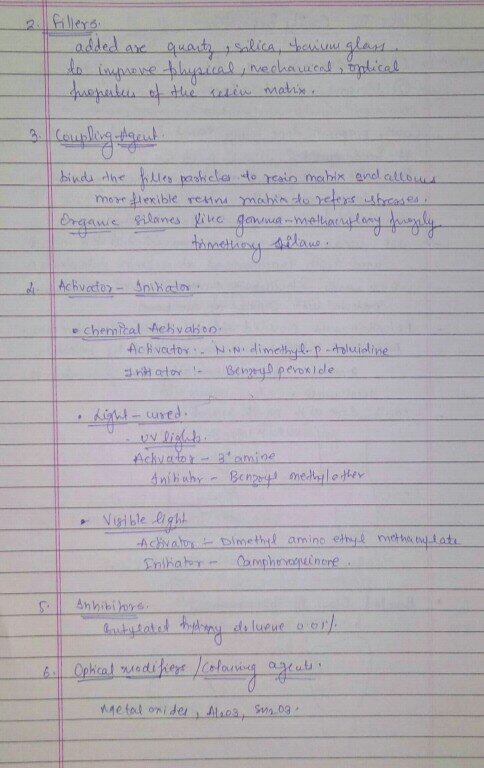 2. Fillers.
added are quartz, silica, barium glass.
to improve physical, mechanical, optical
properties of the resin matrix.
3. Coupling Agent.
binds the filler particles to resin matrix and allows
more flexible resins matrix to refers stresses.
Organic silanes like gamma-methacryloxy propyl
trimethoxy silane.
4. Activator - Initiator.
• Chemical Activation.
Activator :- N.N. dimethyl-p-toluidine
Initiator :- Benzoyl peroxide
• Light-cured.
- UV lights.
Activator - 3° amine
Initiator - Benzoyl methyl ether
• Visible light
Activator :- Dimethyl amino ethyl methacrylate
Initiator - Camphoroquinone.
5. Inhibitors.
Butylated hydroxy toluene 0.01%.
6. Optical modifiers / Colouring agents.
Metal oxides, Al2O3,